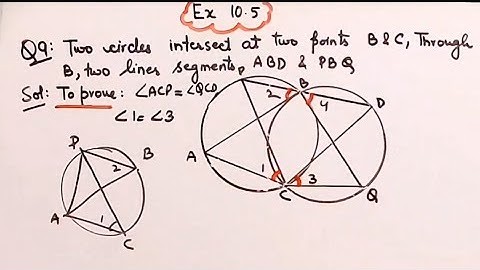 Ex 10.5
Q9: Two circles intersect at two points B & C, Through
B, two lines segments, ABD & PBQ
Sol: To prove: ∠ACP = ∠QCD
∠1 = ∠3
P
2
B
4
D
A
1
C
3
Q
P
B
2
A
1
C